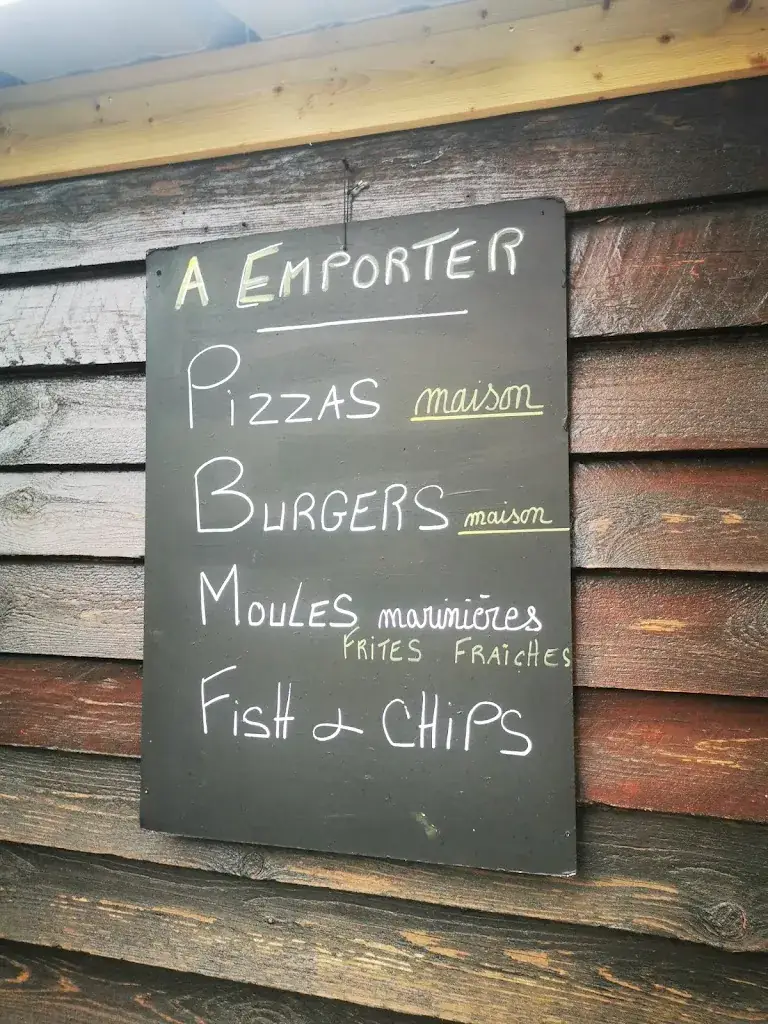 A EMPORTER
PIZZAS maison
BURGERS maison
MOULES marinières
FRITES FRAICHES
FISH & CHIPS